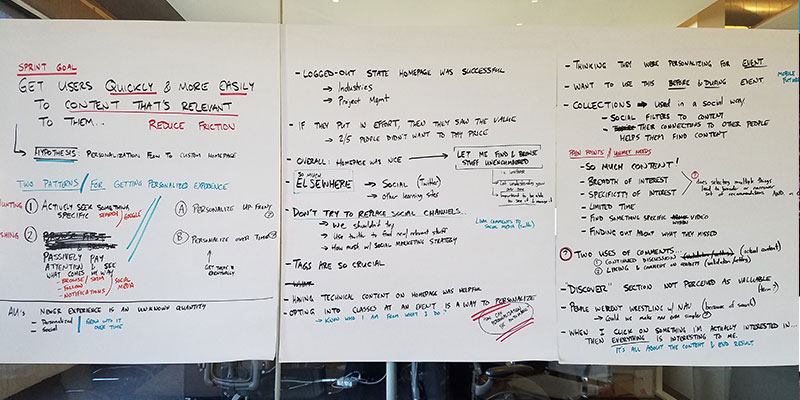 SPRINT GOAL
GET USERS QUICKLY & MORE EASILY
TO CONTENT THAT'S RELEVANT
TO THEM...
REDUCE FRICTION
HYPOTHESIS: PERSONALIZATION FLOW TO CUSTOM HOMEPAGE
TWO PATTERNS / FOR GETTING PERSONALIZED EXPERIENCE
UNTING
1 ACTIVELY SEEK SOMETHING
SPECIFIC
SEARCH / GOOGLE
SHING
2
PASSIVELY PAY
ATTENTION & SEE
WHAT COMES MY WAY
- BROWSE / SKIM
- FOLLOW
- NOTIFICATIONS
SOCIAL
MEDIA
A PERSONALIZE UP FRONT
B PERSONALIZE OVER TIME
GET THEM
EVENTUALLY
NEWER EXPERIENCE IS AN UNKNOWN QUANTITY
- Personalized
- Social
GROW WITH IT
OVER TIME
- LOGGED-OUT STATE HOMEPAGE WAS SUCCESSFUL
→ Industries
→ Project Mgmt
- IF THEY PUT IN EFFORT, THEN THEY SAW THE VALUE
→ 2/5 PEOPLE DIDN'T WANT TO PAY PRICE
- OVERALL: HOMEPAGE WAS NICE
LET ME FIND & BROWSE
STUFF UNENCUMBERED
SO MUCH
ELSEWHERE
→ SOCIAL (Twitter)
→ other learning sites
- DON'T TRY TO REPLACE SOCIAL CHANNELS...
→ We shouldn't try
→ Use twitter to find new relevant stuff
→ How must w/ SOCIAL MARKETING STRATEGY
LINK COMMENTS TO
SOCIAL MEDIA
- TAGS ARE SO CRUCIAL
- HAVING TECHNICAL CONTENT ON HOMEPAGE WAS HELPFUL
- OPTING INTO CLASSES AT AN EVENT IS A WAY TO PERSONALIZE
- "KNOW WHO I AM FROM WHAT I DO"
HOW CAN
PERSONALIZATION
BE
- THINKING THEY WERE PERSONALIZING FOR EVENT
- WANT TO USE THIS BEFORE & DURING EVENT
MOBILE
- COLLECTIONS → used in a social way
- SOCIAL FILTERS TO CONTENT
- THEIR CONNECTIONS TO OTHER PEOPLE
HELPS THEM FIND CONTENT
PAIN POINTS / UNMET NEEDS
- SO MUCH CONTENT!
- BREADTH OF INTEREST
- SPECIFICITY OF INTEREST
- LIMITED TIME
- FIND SOMETHING SPECIFIC VIDEO
- FINDING OUT ABOUT WHAT THEY MISSED
? does selecting multiple things
lead to broader or narrower
set of recommendations
? TWO USES OF COMMENTS...
1 CONTINUED DISCUSSION (actual content)
2 LIKING & COMMENT ON CONTENT
- "DISCOVER" SECTION NOT PERCEIVED AS VALUABLE
- PEOPLE WEREN'T WRESTLING W/ NAV (because of search)
→ Could we make nav even simpler?
- WHEN I CLICK ON SOMETHING I'M ACTUALLY INTERESTED IN...
THEN EVERYTHING IS INTERESTING TO ME.
IT'S ALL ABOUT THE CONTENT & END RESULT